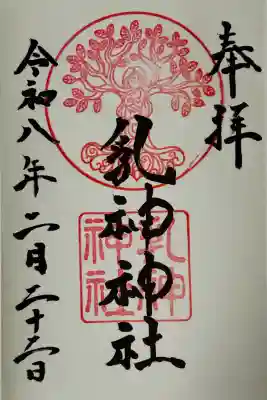 奉拝
乳神神社
令和八年二月二十二日
乳神
神社